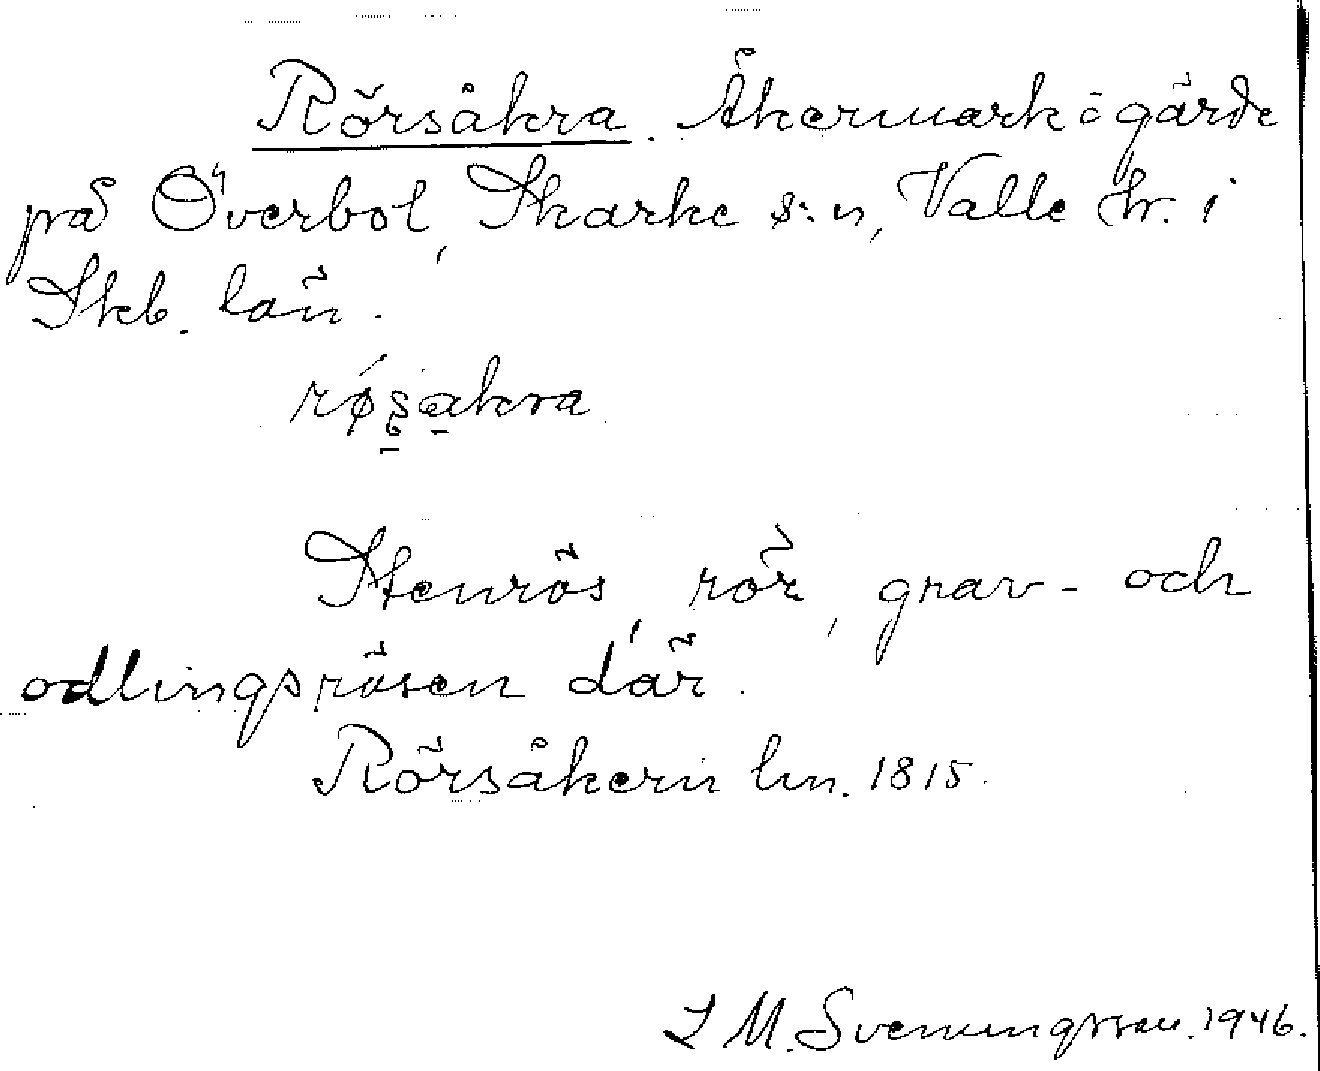 Rörsåkra. Åkermark i gärde
på Överbol, Skarke s:n, Valle hr. i
Skb. län.
Stenrös, rör, grav- och
odlingsrösen där.
Rörsåkern lm. 1815.
J M. Svenungsson. 1946.